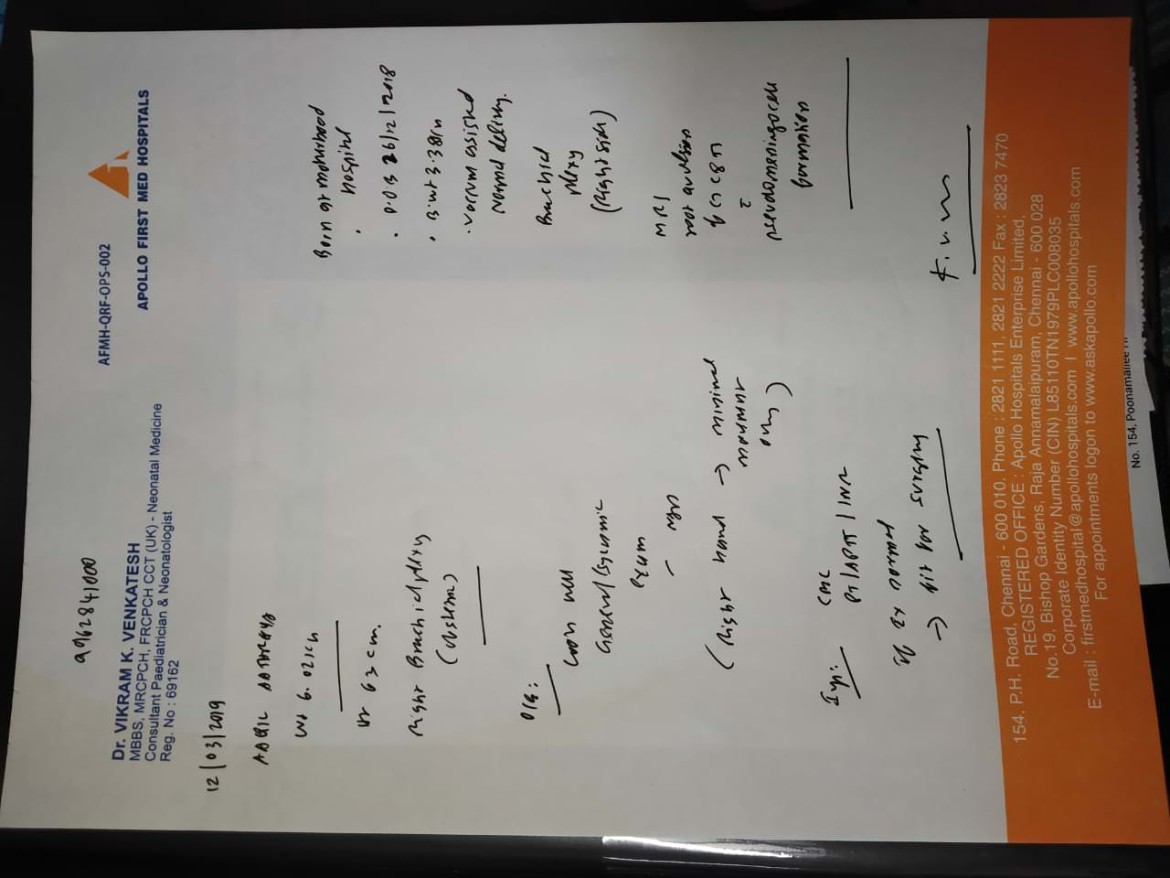 9962841000
Dr. VIKRAM K. VENKATESH
MBBS, MRCPCH, FRCPCH CCT (UK) - Neonatal Medicine
Consultant Paediatrician & Neonatologist
Reg. No : 69162
AFMH-QRF-OPS-002
APOLLO FIRST MED HOSPITALS
12/03/2019
Wt 6.02kg
Ht 63 cm.
Right Brachial plexy
O/E:
Looks well
General/Systemic
Exam
(Right hand → minimal
movement
only)
CBC
PT/APTT/INR
If Ex normal
→ fit for surgery
Born at motherhood
hospital
D.O.B 26/12/2018
B.wt 3.38kg
Vaccum assisted
Normal delivery.
Brachial
plexy
(Right side)
MRI
root avulsion
pseudomeningocele
formation
154, P.H. Road, Chennai - 600 010. Phone : 2821 1111, 2821 2222 Fax : 2823 7470
REGISTERED OFFICE : Apollo Hospitals Enterprise Limited,
No.19, Bishop Gardens, Raja Annamalaipuram, Chennai - 600 028
Corporate Identity Number (CIN) L85110TN1979PLC008035
E-mail : firstmedhospital@apollohospitals.com | www.apollohospitals.com
For appointments logon to www.askapollo.com
No. 154, Poonamallee